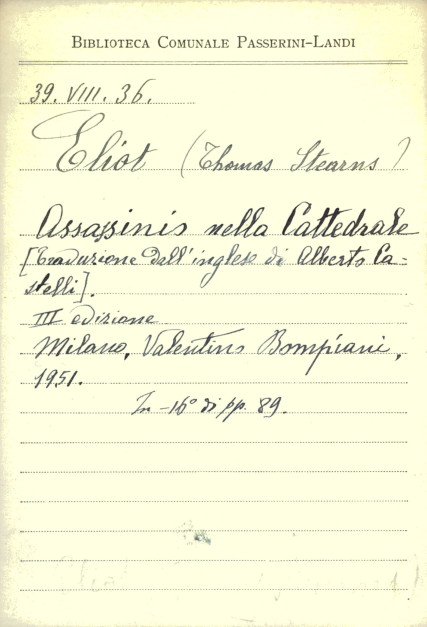 BIBLIOTECA COMUNALE PASSERINI-LANDI
39. VIII. 36.
Eliot (Thomas Stearns)
Assassinio nella Cattedrale
[Traduzione dall'inglese di Alberto Ca-
stelli].
III edizione
Milano, Valentino Bompiani,
1951.
In-16° di pp. 89.